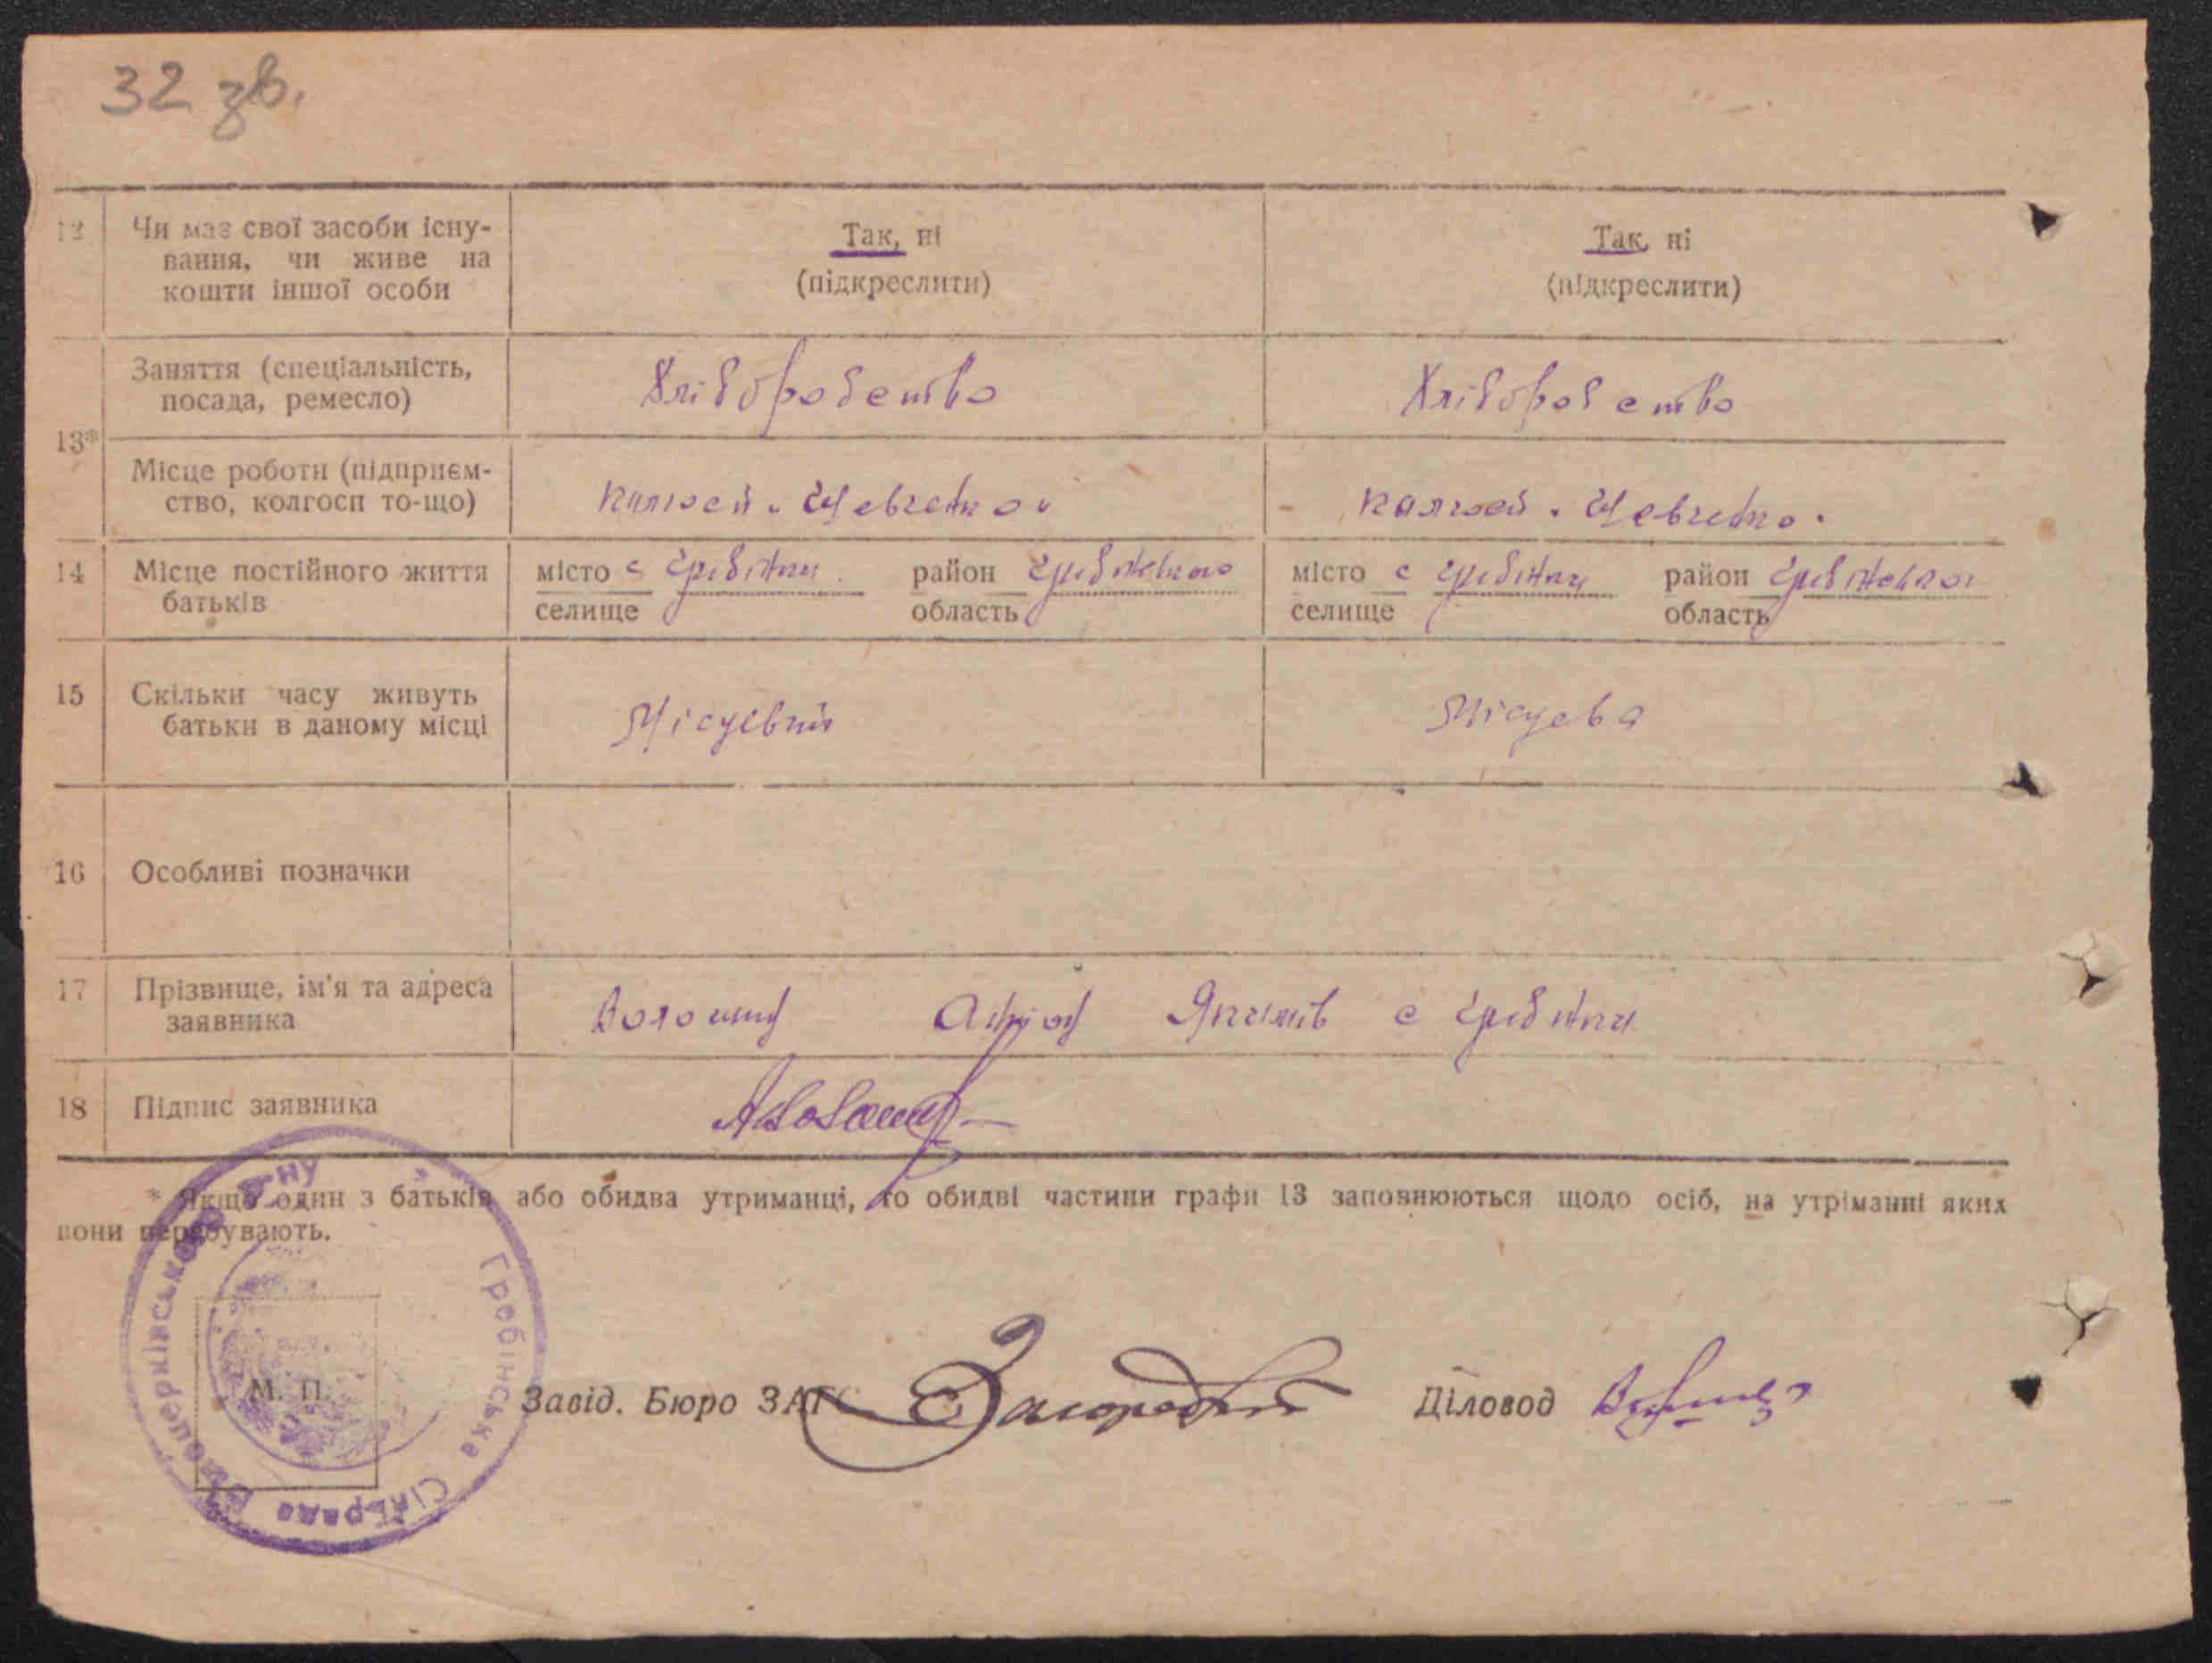 32 зв.
12 Чи має свої засоби існу-
вання, чи живе на
кошти іншої особи
Так, ні
(підкреслити)
Так, ні
(підкреслити)
13*
Заняття (спеціальність,
посада, ремесло)
Хліборобство
Хліборобство
Місце роботи (підприєм-
ство, колгосп то-що)
Шевченко
Шевченко
14 Місце постійного життя
батьків
місто с Гребінки район
селище область
місто с Гребінки район
селище область
15 Скільки часу живуть
батьки в даному місці
Місцевий
Місцева
16 Особливі позначки
17 Прізвище, ім'я та адреса
заявника
Волошин с Гребінки
18 Підпис заявника
* Якщо один з батьків або обидва утриманці, то обидві частини графи 13 заповнюються щодо осіб, на утріманні яких
вони перебувають.
Гребінська Сільрада
р-ну
М. П.
Завід. Бюро ЗАГС
Діловод